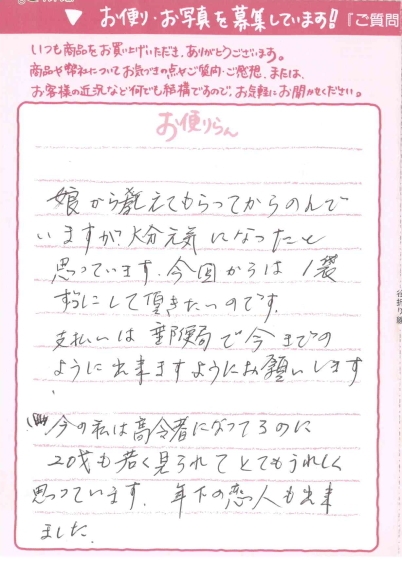 ▼ お便り・お写真を募集しています!!『ご質問
いつも商品をお買い上げいただき、ありがとうございます。
商品や弊社についてお気づきの点やご質問・ご感想、または、
お客様の近況など何でも結構ですので、お気軽にお聞かせください。
お便りらん
娘から教えてもらってからのんで
いますが?大分元気になったと
思っています.今回からは1袋
ずつにして頂きたいのです.
支払いは郵便局で今までの
ように出来ますようにお願いします
今の私は高令者になってるのに
20才も若く見られてとてもうれしく
思っています.年下の恋人も出来
ました.